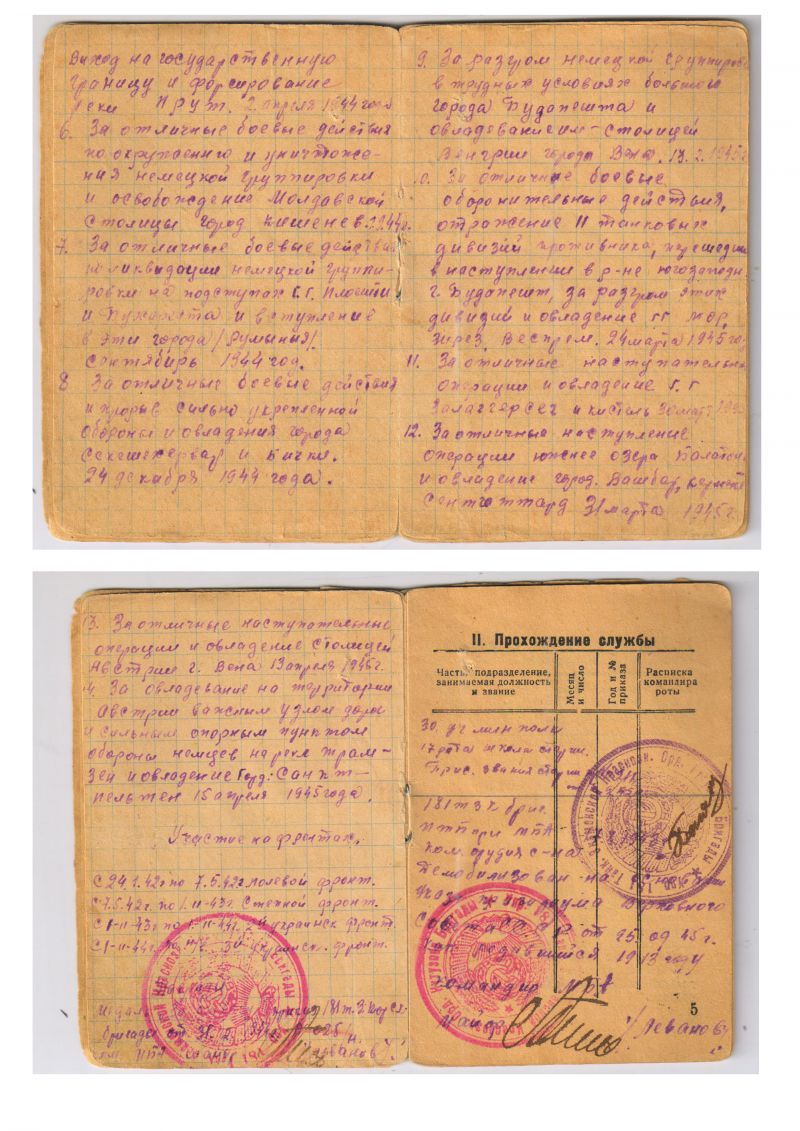 Выход на государственную
границу и форсирование
реки Прут. 2 апреля 1944 года
6. За отличные боевые действия
по и уничтоже-
ния немецкой группировки
и освобождение Молдавской
столицы город Кишенев. 1944г.
7. За отличные боевые действия
по ликвидации немецкой группи-
ровки на подступах г.г. Плоешти
и Бухареста и вступление
в эти города /Румыния/
сентябирь 1944 год.
8 За отличные боевые действия
и прорыв сильно укрепленной
обороны и овладения города
Секешехервар и Бичке.
24 декабря 1944 года.
9. За разгром немецкой группировк
в трудных условиях большого
города Будопешта и
овладеванием-столицей
Венгрии города Вена. 13.2.1945г
10. За отличные боевые
оборонительные действия,
отражение 11 танковых
дивизий противника,
в наступлении в р-не югозападн.
г. Будопешт, за разгром этих
дивизий и овладение гг Мор,
Зирез, Веспрем. 24 марта 1945 го.
11. За отличные наступательн
операции и овладение г.г
Залаггерсег и 30 март 1945
12. За отличные наступление
операции южнее озера Балатон
и овладение город. Вашвар, кермент
Сентготтард 31 марта 1945г.
13. За отличные наступательные
операции и овладение столицей
Австрии г. Вена 13 апреля 1945г.
14. За овладевание на территории
Австрии важным узлом дорог
и сильным опорным пунктом
обороны немцев на реке Трам-
зей и овладение Горд: Санкт-
пельтен 15 апреля 1945 года.
Участие на фронтах.
С 24.1.42г по 7.5.42г. полевой фронт.
С 7.5.42г по 1.11-43г Степной фронт.
С 1-11-43г по 1-11-44г. 2й украинск фронт.
С 1-11-44г по 3й украинск. фронт.
181
бригады от
II. Прохождение службы
Часть, подразделение, занимаемая должность и звание
Месяц и число
Год и № приказа
Расписка командира роты
30. уч мин полк
17 рота школа
181
ком орудия с-на
Демобилизован на
Указ президиума Верховного
Совета СССР от 25. 45г.
1913 году
командир
5
майор /Леванов/